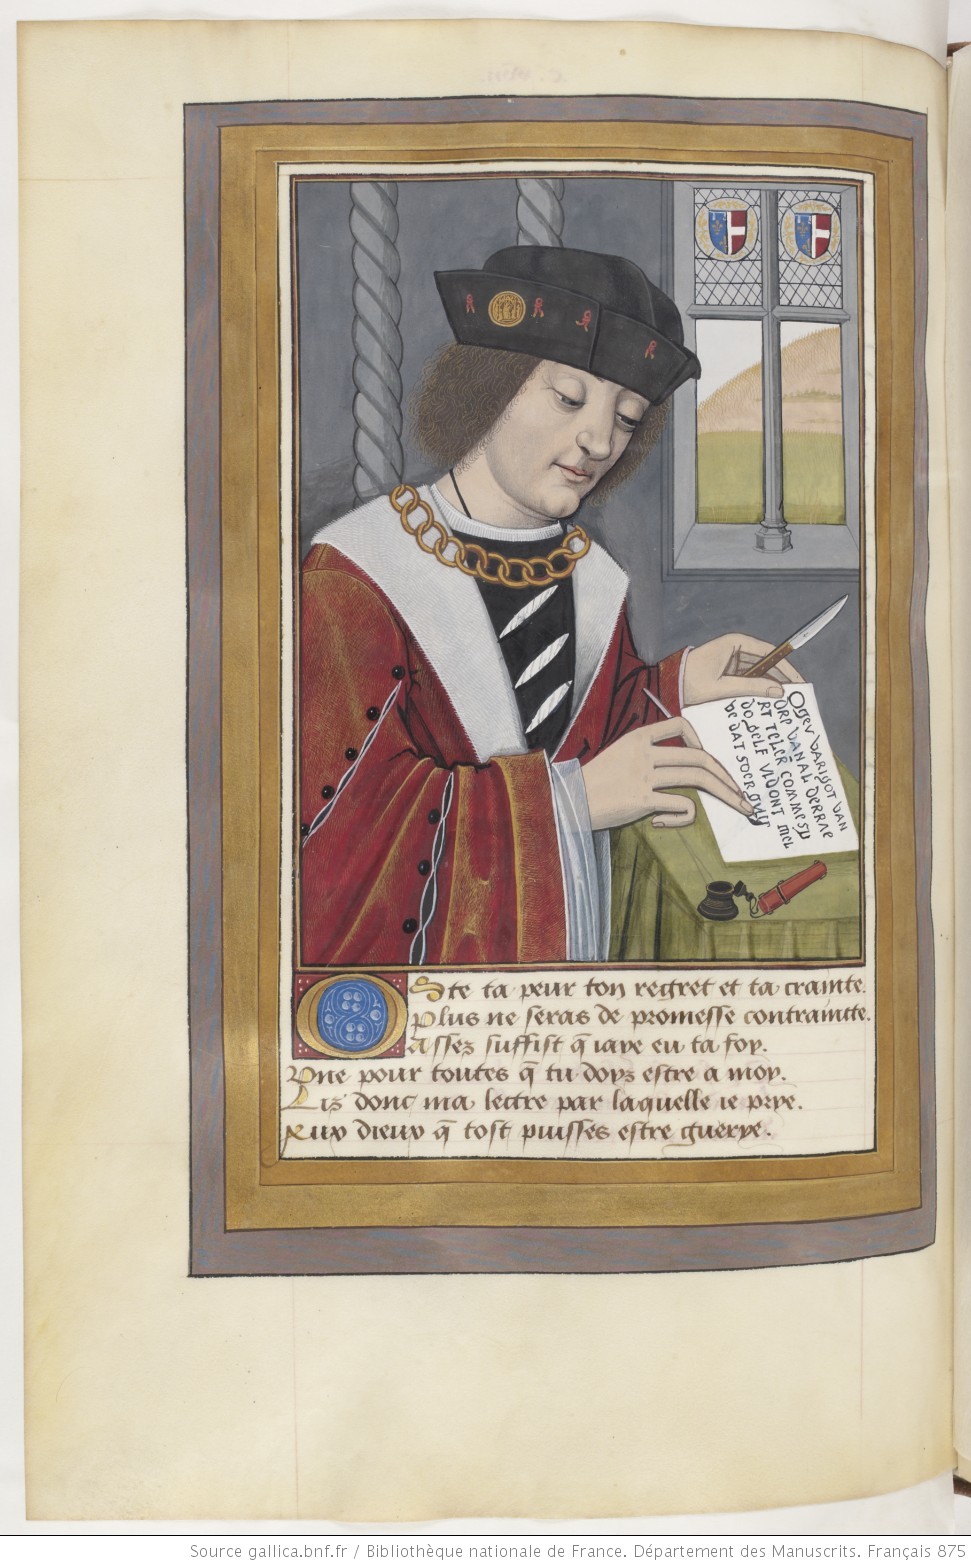 Oste ta peur ton regret et ta crainte.
Plus ne seras de promesse contraincte.
Assez suffist q̃ iaye eu ta foy.
Vne pour toutes q̃ tu doyz estre a moy.
Liz donc ma lectre par laquelle ie prye.
Aux dieux q̃ tost puisses estre guerye.
Source gallica.bnf.fr / Bibliothèque nationale de France. Département des Manuscrits. Français 875